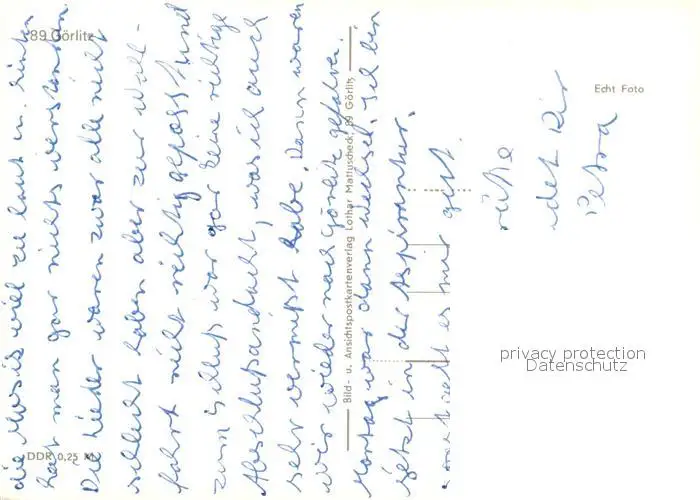 89 Görlitz
die Musik viel zu laut u. hinten
hat man gar nichts verstanden.
Die Lieder waren zwar alle nicht
schlecht haben aber zur Wall-
fahrt nicht richtig gepasst und
zum Schluß war gar keine richtige
Abschlußandacht, was ich auch
sehr vermißt habe. Dann waren
wir wieder nach Görlitz gefahren.
Montag war dann Wechsel. Ich bin
jetzt in der Aspirantur.
geht es mir gut.
Grüße
det Dir
Petra
DDR 0,25 M
Bild- u. Ansichtspostkartenverlag Lothar Mattuscheck, 89 Görlitz
Echt Foto
privacy protection
Datenschutz